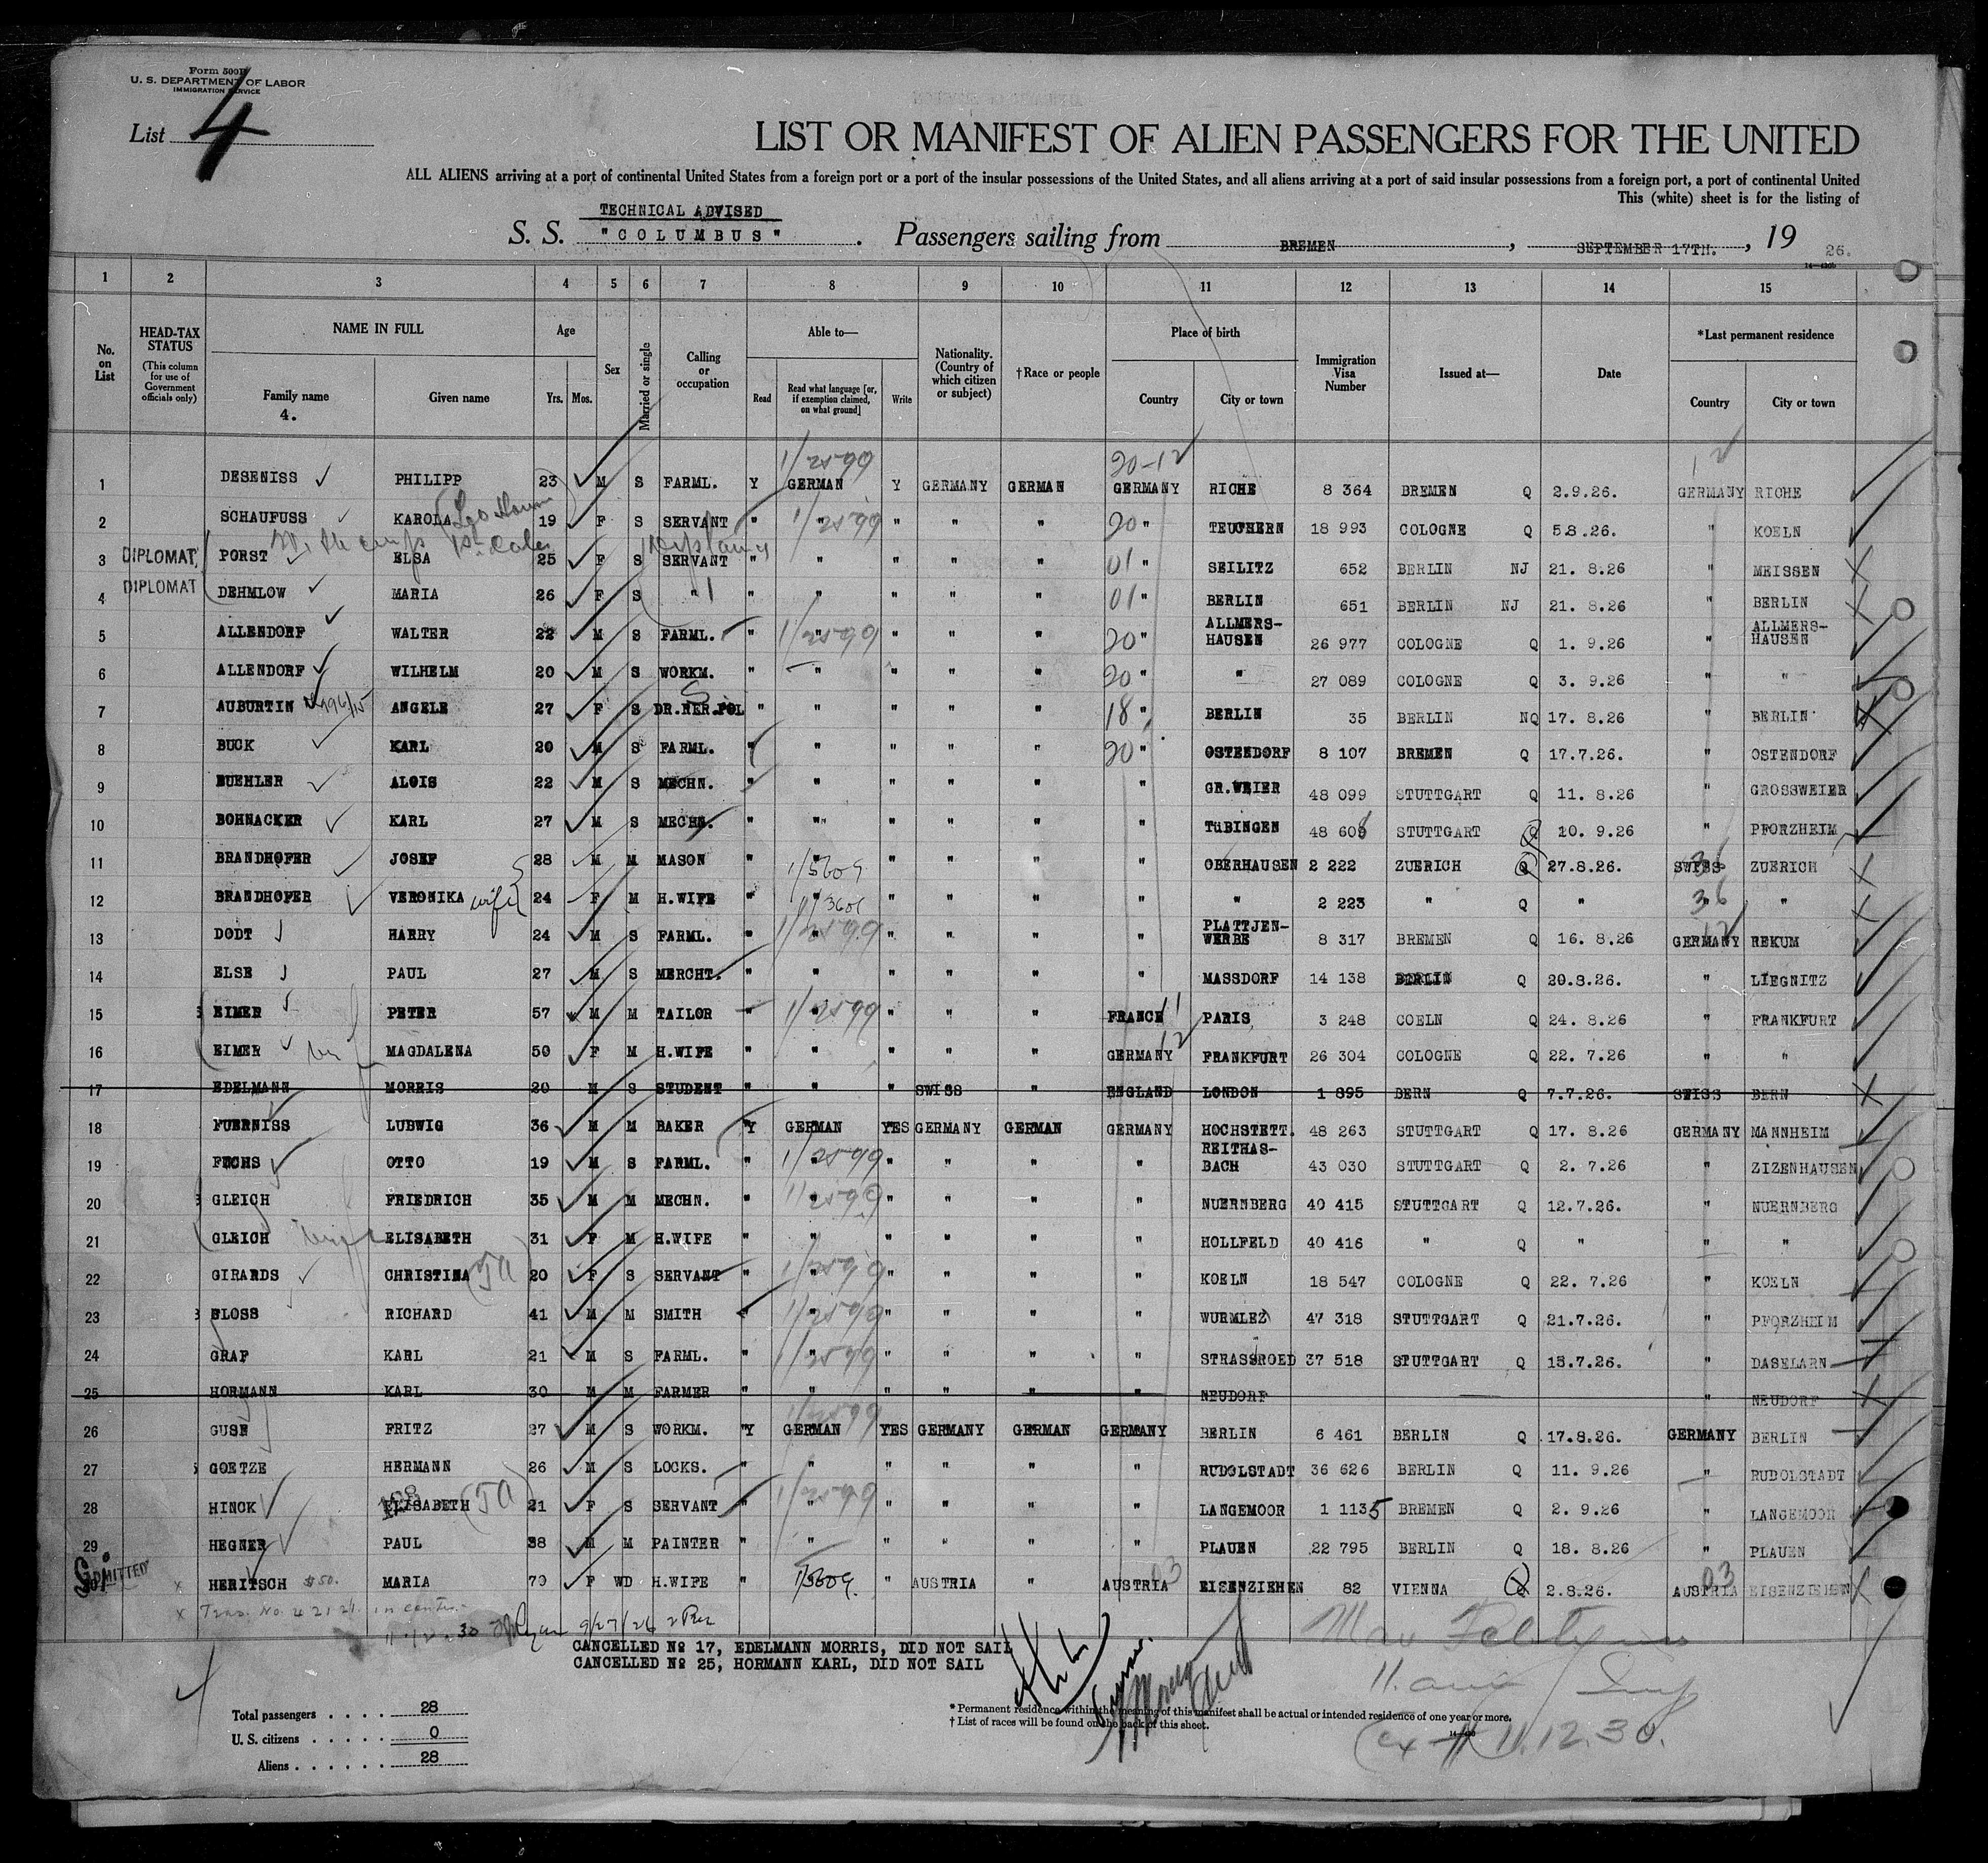 Form 500B
U. S. DEPARTMENT OF LABOR
IMMIGRATION SERVICE
List 4
LIST OR MANIFEST OF ALIEN PASSENGERS FOR THE UNITED
ALL ALIENS arriving at a port of continental United States from a foreign port or a port of the insular possessions of the United States, and all aliens arriving at a port of said insular possessions from a foreign port, a port of continental United
This (white) sheet is for the listing of
TECHNICAL ADVISED
S. S. "COLUMBUS". Passengers sailing from BREMEN, SEPTEMBER 17TH., 19 26.
1 2 3 4 5 6 7 8 9 10 11 12 13 14 15
No. on List
HEAD-TAX STATUS
(This column for use of Government officials only)
NAME IN FULL
Family name
4.
Given name
Age
Yrs. Mos.
Sex
Married or single
Calling or occupation
Able to—
Read
Read what language [or, if exemption claimed, on what ground]
Write
Nationality. (Country of which citizen or subject)
†Race or people
Place of birth
Country
City or town
Immigration Visa Number
Issued at—
Date
*Last permanent residence
Country
City or town
1 DESENISS PHILIPP 23 M S FARML. Y GERMAN Y GERMANY GERMAN GERMANY RICHE 8 364 BREMEN Q 2.9.26. GERMANY RICHE
2 SCHAUFUSS KAROLA 19 F S SERVANT " " " " " 20 " TEUCHERN 18 993 COLOGNE Q 5.8.26. " KOELN
3 DIPLOMAT. PORST ELSA 25 F S SERVANT " " " " " 01 " SEILITZ 652 BERLIN NJ 21. 8.26 " MEISSEN
4 DIPLOMAT DEHMLOW MARIA 26 F S " " " " " " 01 " BERLIN 651 BERLIN NJ 21. 8.26 " BERLIN
5 ALLENDORF WALTER 22 M S FARML. " " " " " 20 " ALLMERS-HAUSEN 26 977 COLOGNE Q 1. 9.26 " ALLMERS-HAUSEN
6 ALLENDORF WILHELM 20 M S WORKM. " " " " " 20 " " 27 089 COLOGNE Q 3. 9.26 " "
7 AUBURTIN ANGELE 27 F S DR.RER.POL " " " " " 18 " BERLIN 35 BERLIN NQ 17. 8.26 " BERLIN
8 BUCK KARL 20 M S FARML. " " " " " 20 " OSTENDORF 8 107 BREMEN Q 17.7.26. " OSTENDORF
9 BUEHLER ALOIS 22 M S MECHN. " " " " " " GR.WEIER 48 099 STUTTGART Q 11. 8.26 " GROSSWEIER
10 BOHNACKER KARL 27 M S MECHN. " " " " " " TüBINGEN 48 608 STUTTGART Q 10. 9.26 " PFORZHEIM
11 BRANDHOFER JOSEF 28 M M MASON " " " " " " OBERHAUSEN 2 222 ZUERICH Q 27.8.26. SWISS ZUERICH
12 BRANDHOFER VERONIKA wife 24 F M H.WIFE " " " " " " " 2 223 " Q " " "
13 DODT HARRY 24 M S FARML. " " " " " " PLATTJEN-WERBE 8 317 BREMEN Q 16. 8.26 GERMANY REKUM
14 ELSE PAUL 27 M S MERCHT. " " " " " " MASSDORF 14 138 BERLIN Q 20.8.26. " LIEGNITZ
15 EIMER PETER 57 M M TAILOR " " " " " FRANCE PARIS 3 248 COELN Q 24. 8.26 " FRANKFURT
16 EIMER MAGDALENA 50 F M H.WIFE " " " " " GERMANY FRANKFURT 26 304 COLOGNE Q 22. 7.26 " "
17 EDELMANN MORRIS 20 M S STUDENT " " " SWISS " ENGLAND LONDON 1 895 BERN Q 7.7.26. SWISS BERN
18 FUERNISS LUDWIG 36 M M BAKER Y GERMAN YES GERMANY GERMAN GERMANY HOCHSTETT. 48 263 STUTTGART Q 17. 8.26 GERMANY MANNHEIM
19 FUCHS OTTO 19 M S FARML. " " " " " " REITHAS-BACH 43 030 STUTTGART Q 2. 7.26 " ZIZENHAUSEN
20 GLEICH FRIEDRICH 35 M M MECHN. " " " " " " NUERNBERG 40 415 STUTTGART Q 12.7.26. " NUERNBERG
21 GLEICH wife ELISABETH 31 F M H.WIFE " " " " " " HOLLFELD 40 416 " Q " " "
22 GIRARDS CHRISTINA 20 F S SERVANT " " " " " " KOELN 18 547 COLOGNE Q 22. 7.26 " KOELN
23 RICHARD 41 M M SMITH " " " " " " 47 318 STUTTGART Q 21.7.26. " PFORZHEIM
24 GRAF KARL 21 M S FARML. " " " " " " STRASSROED 37 518 STUTTGART Q 15.7.26. " DASELARN
25 HORMANN KARL 30 M M FARMER " " " " " " NEUDORF " NEUDORF
26 GUSE FRITZ 27 M S WORKM. Y GERMAN YES GERMANY GERMAN GERMANY BERLIN 6 461 BERLIN Q 17.8.26. GERMANY BERLIN
27 GOETZE HERMANN 26 M S LOCKS. " " " " " " RUDOLSTADT 36 626 BERLIN Q 11. 9.26 " RUDOLSTADT
28 HINCK ELISABETH 21 F S SERVANT " " " " " " LANGEMOOR 1 1135 BREMEN Q 2. 9.26 " LANGEMOOR
29 HEGNER PAUL 38 M M PAINTER " " " " " " PLAUEN 22 795 BERLIN Q 18. 8.26 " PLAUEN
ADMITTED HERITSCH $50. MARIA 70 F WD H.WIFE " " AUSTRIA " AUSTRIA EISENZIEHEN 82 VIENNA Q 2.8.26. AUSTRIA EISENZIEHEN
9/27/26
CANCELLED No 17, EDELMANN MORRIS, DID NOT SAIL
CANCELLED No 25, HORMANN KARL, DID NOT SAIL
Total passengers . . . . 28
U. S. citizens . . . . . 0
Aliens . . . . . . 28
* Permanent residence within the meaning of this manifest shall be actual or intended residence of one year or more.
† List of races will be found on the back of this sheet.
11.12.30.